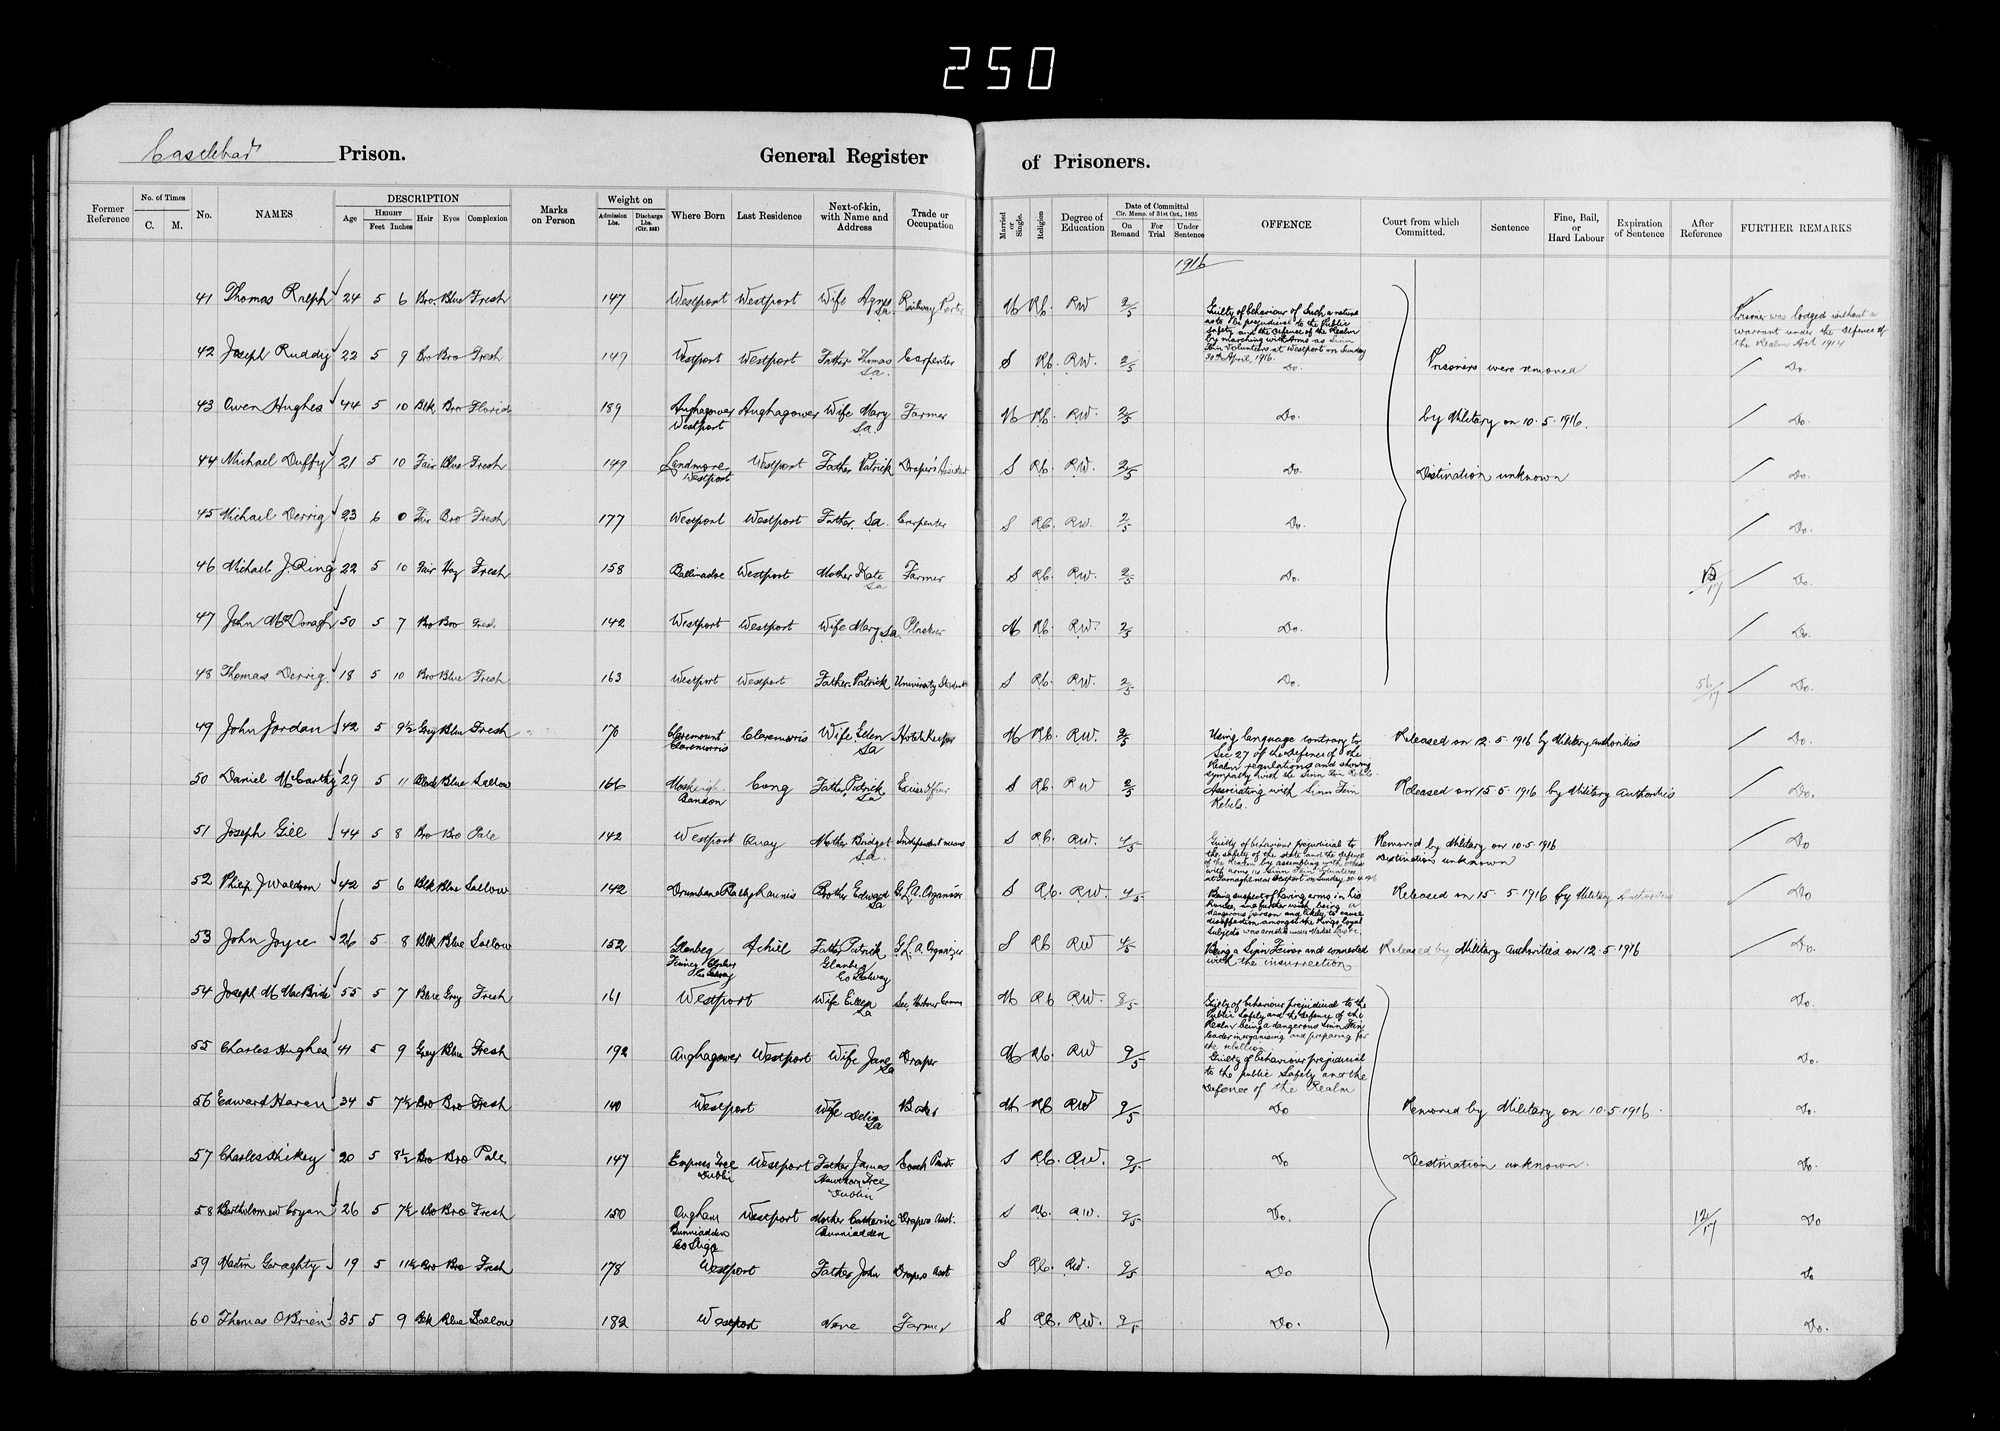 250
Castlebar Prison. General Register of Prisoners.
Former Reference No. of Times C. M. No. NAMES DESCRIPTION Age HEIGHT Feet Inches Hair Eyes Complexion Marks on Person Weight on Admission Lbs. Discharge Lbs. (Cir. 353) Where Born Last Residence Next-of-kin, with Name and Address Trade or Occupation Married or Single. Religion Degree of Education Date of Committal Cir. Memo. of 31st Oct., 1895 On Remand For Trial Under Sentence OFFENCE Court from which Committed. Sentence Fine, Bail, or Hard Labour Expiration of Sentence After Reference FURTHER REMARKS
1916
41 Thomas Ralph 24 5 6 Bro. Blue Fresh 147 Westport Westport Wife Agnes Sa. Railway Porter M Rb. RW 2/5 Guilty of behaviour of such a nature as to be prejudicial to the Public Safety and the Defence of the Realm by marching with Arms as Sinn Fein Volunteers at Westport on Sunday 30th April, 1916. Prisoner was lodged without a warrant under the Defence of the Realm Act 1914
42 Joseph Ruddy 22 5 9 Bro Bro Fresh 149 Westport Westport Father Thomas Sa. Carpenter S Rb. RW. 2/5 Do. Prisoners were removed Do.
43 Owen Hughes 44 5 10 Blk Bro Florid 189 Aughagower Westport Aughagower Wife Mary Sa. Farmer M Rb. RW. 2/5 Do. by Military on 10.5.1916. Do.
44 Michael Duffy 21 5 10 Fair Blue Fresh 149 Westport Westport Father Patrick Draper's Assistant S Rb. RW. 2/5 Do. Destination unknown Do.
45 Michael Derrig 23 6 0 Fair Bro Fresh 177 Westport Westport Father Sa. Carpenter S Rb. RW. 2/5 Do. Do.
46 Michael J. Ring 22 5 10 Fair Haz Fresh 158 Westport Mother Kate Sa Farmer S Rb. RW. 2/5 Do. Do.
47 John McDonagh 50 5 7 Bro Bro Fresh 142 Westport Westport Wife Mary Sa. M Rb. RW. 2/5 Do. Do.
48 Thomas Derrig. 18 5 10 Bro Blue Fresh 163 Westport Westport Father Patrick University Student S Rb. RW. 2/5 Do. 56/17 Do.
49 John Jordan 42 5 9½ Grey Blue Fresh 170 Claremount Claremorris Claremorris Wife Ellen Sa Hotel Keeper M Rb. RW. 2/5 Using language contrary to Sec 27 of the Defence of the Realm regulations and showing sympathy with the Sinn Fein Rebels. Released on 12.5.1916 by Military authorities Do.
50 Daniel McCarthy 29 5 11 Black Blue Sallow 166 Bandon Cong Father Patrick Sa Excise Officer S Rb. RW 2/5 Associating with Sinn Fein Rebels. Released on 15.5.1916 by Military authorities Do.
51 Joseph Gill 44 5 8 Bro Bro Pale 142 Westport Quay Mother Bridget Sa. Independent means S Rb. RW. 4/5 Guilty of behaviour prejudicial to the safety of the state and the defence of the Realm by assembling with others with arms as Sinn Fein Volunteers near Westport on Sunday 30.4.1916 Removed by Military on 10.5.1916 Destinations unknown Do
52 Philip J Waldron 42 5 6 Blk Blue Sallow 142 Drumbane Ballyhaunis Brother Edward Sa G.L.A. Organiser S Rb. RW. 4/5 Being suspect of having arms in his house, and further with being a dangerous person and likely to cause disaffection amongst the Kings loyal Subjects was arrested under Martial Law Released on 15.5.1916 by Military Authorities Do
53 John Joyce 26 5 8 Blk Blue Sallow 152 Glanbeg Co Galway Achill Father Patrick Glanbeg Co Galway G.L.A. Organizer S Rb RW 4/5 Being a Sinn Feiner and connected with the insurrection Released by Military Authorities on 12.5.1916 Do.
54 Joseph M MacBride 55 5 7 Grey Fresh 161 Westport Wife Eileen Sa M Rb RW. 8/5 Guilty of behaviour prejudicial to the Public Safety and the Defence of the Realm being a dangerous Sinn Fein leader in organising and preparing for the rebellion Do.
55 Charles Hughes 41 5 9 Grey Blue Fresh 192 Aughagower Westport Wife Jane Sa Draper M Rb. RW 9/5 Guilty of behaviour prejudicial to the public Safety and the Defence of the Realm Do.
56 Edward Haren 34 5 7½ Bro Bro Fresh 140 Westport Wife Delia Sa Baker M Rb RW 9/5 Do Removed by Military on 10.5.1916. Do.
57 Charles Hickey 20 5 8½ Bro Bro Pale 147 Dublin Westport Father James Dublin Coach Painter S Rb. RW. 9/5 Do Destination unknown. Do.
58 Bartholomew Cryan 26 5 7½ Bro Bro Fresh 150 Bunniadden Co Sligo Westport Mother Catherine Bunniadden Drapers Asst. S Rb. RW. 9/5 Do. 12/17 Do
59 Martin Geraghty 19 5 11½ Bro Bro Fresh 178 Westport Father John Drapers Asst S Rb. RW. 9/5 Do Do
60 Thomas O'Brien 35 5 9 Blk Blue Sallow 182 Westport None Farmer S Rb. RW. 9/5 Do. Do.